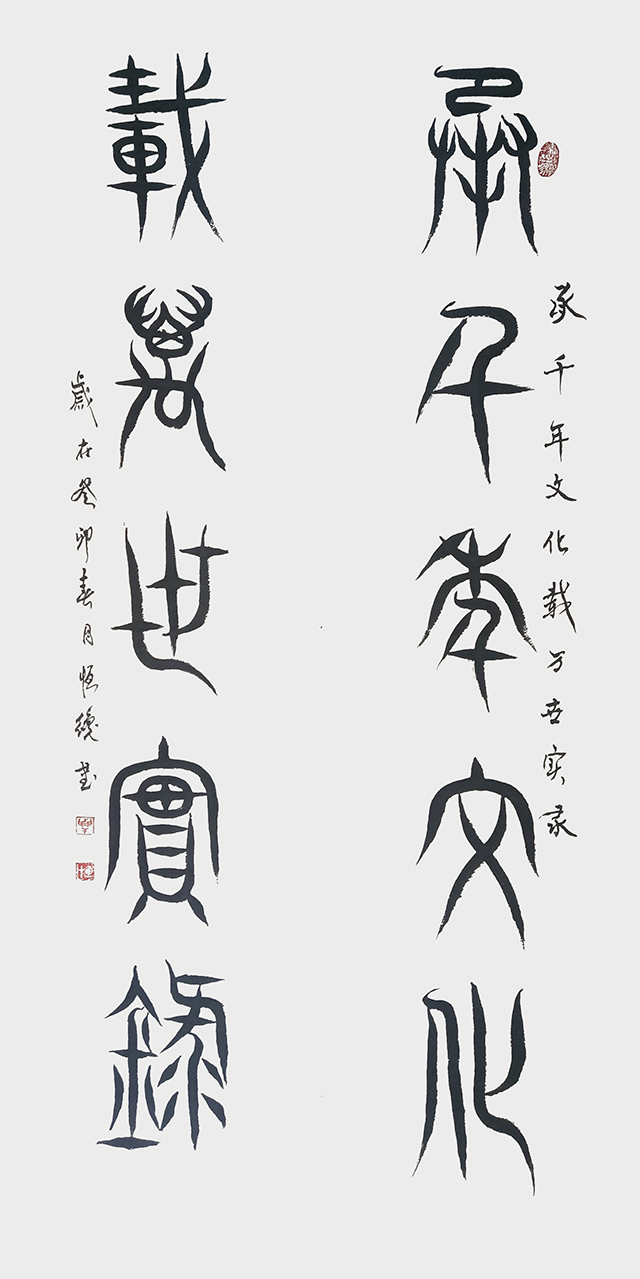 承千年文化載万世实录
承千年文化
載萬世實錄
歲在癸卯春月恒书